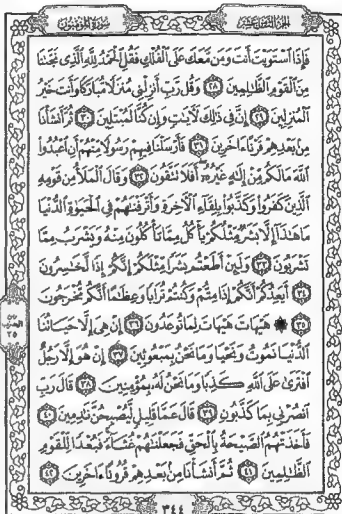 الجزء الثامن عشر
سورة المؤمنون
فَإِذَا ٱسْتَوَيْتَ أَنتَ وَمَن مَّعَكَ عَلَى ٱلْفُلْكِ فَقُلِ ٱلْحَمْدُ لِلَّهِ ٱلَّذِى نَجَّىٰنَا
مِنَ ٱلْقَوْمِ ٱلظَّٰلِمِينَ ٢٨ وَقُل رَّبِّ أَنزِلْنِى مُنزَلًا مُّبَارَكًا وَأَنتَ خَيْرُ
ٱلْمُنزِلِينَ ٢٩ إِنَّ فِى ذَٰلِكَ لَءَايَٰتٍ وَإِن كُنَّا لَمُبْتَلِينَ ٣٠ ثُمَّ أَنشَأْنَا
مِنۢ بَعْدِهِمْ قَرْنًا ءَاخَرِينَ ٣١ فَأَرْسَلْنَا فِيهِمْ رَسُولًا مِّنْهُمْ أَنِ ٱعْبُدُوا۟
ٱللَّهَ مَا لَكُم مِّنْ إِلَٰهٍ غَيْرُهُۥٓ أَفَلَا تَتَّقُونَ ٣٢ وَقَالَ ٱلْمَلَأُ مِن قَوْمِهِ
ٱلَّذِينَ كَفَرُوا۟ وَكَذَّبُوا۟ بِلِقَآءِ ٱلْءَاخِرَةِ وَأَتْرَفْنَٰهُمْ فِى ٱلْحَيَوٰةِ ٱلدُّنْيَا
مَا هَٰذَآ إِلَّا بَشَرٌ مِّثْلُكُمْ يَأْكُلُ مِمَّا تَأْكُلُونَ مِنْهُ وَيَشْرَبُ مِمَّا
تَشْرَبُونَ ٣٣ وَلَئِنْ أَطَعْتُم بَشَرًا مِّثْلَكُمْ إِنَّكُمْ إِذًا لَّخَٰسِرُونَ
٣٤ أَيَعِدُكُمْ أَنَّكُمْ إِذَا مِتُّمْ وَكُنتُمْ تُرَابًا وَعِظَٰمًا أَنَّكُم مُّخْرَجُونَ
٣٥ ۞ هَيْهَاتَ هَيْهَاتَ لِمَا تُوعَدُونَ ٣٦ إِنْ هِىَ إِلَّا حَيَاتُنَا
ٱلدُّنْيَا نَمُوتُ وَنَحْيَا وَمَا نَحْنُ بِمَبْعُوثِينَ ٣٧ إِنْ هُوَ إِلَّا رَجُلٌ
ٱفْتَرَىٰ عَلَى ٱللَّهِ كَذِبًا وَمَا نَحْنُ لَهُۥ بِمُؤْمِنِينَ ٣٨ قَالَ رَبِّ
ٱنصُرْنِى بِمَا كَذَّبُونِ ٣٩ قَالَ عَمَّا قَلِيلٍ لَّيُصْبِحُنَّ نَٰدِمِينَ ٤٠
فَأَخَذَتْهُمُ ٱلصَّيْحَةُ بِٱلْحَقِّ فَجَعَلْنَٰهُمْ غُثَآءً فَبُعْدًا لِّلْقَوْمِ
ٱلظَّٰلِمِينَ ٤١ ثُمَّ أَنشَأْنَا مِنۢ بَعْدِهِمْ قُرُونًا ءَاخَرِينَ ٤٢
الحزب
٣٥
٣٤٤